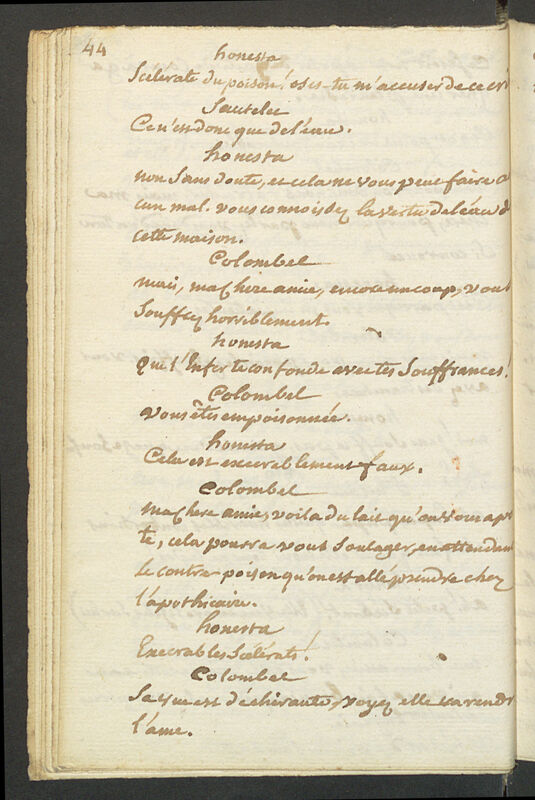 44
honesta
Scélérate du poison! oses-tu m'accuser de ce cri
Sautelec
Ce n'est donc que de l'eau.
honesta
non sans doute, et cela ne vous peut faire a
cun mal. vous connoissez la vertu de l'eau d
cette maison.
Colombel
mais, ma chere amie, encore un coup, vous
souffrez horriblement.
honesta
que l'Enfer te confonde avec tes souffrances!
Colombel
vous êtes empoisonnée.
honesta
Cela est execrablement faux.
Colombel
ma chere amie, voila du lait qu'on vous apor
te, cela pourra vous soulager, en attendant
le contre-poison qu'on est allé prendre chez
l'apothicaire.
honesta
Execrables Scélérats!
Colombel
Sa vue est déchirante, voyez elle va rendr
l'ame.